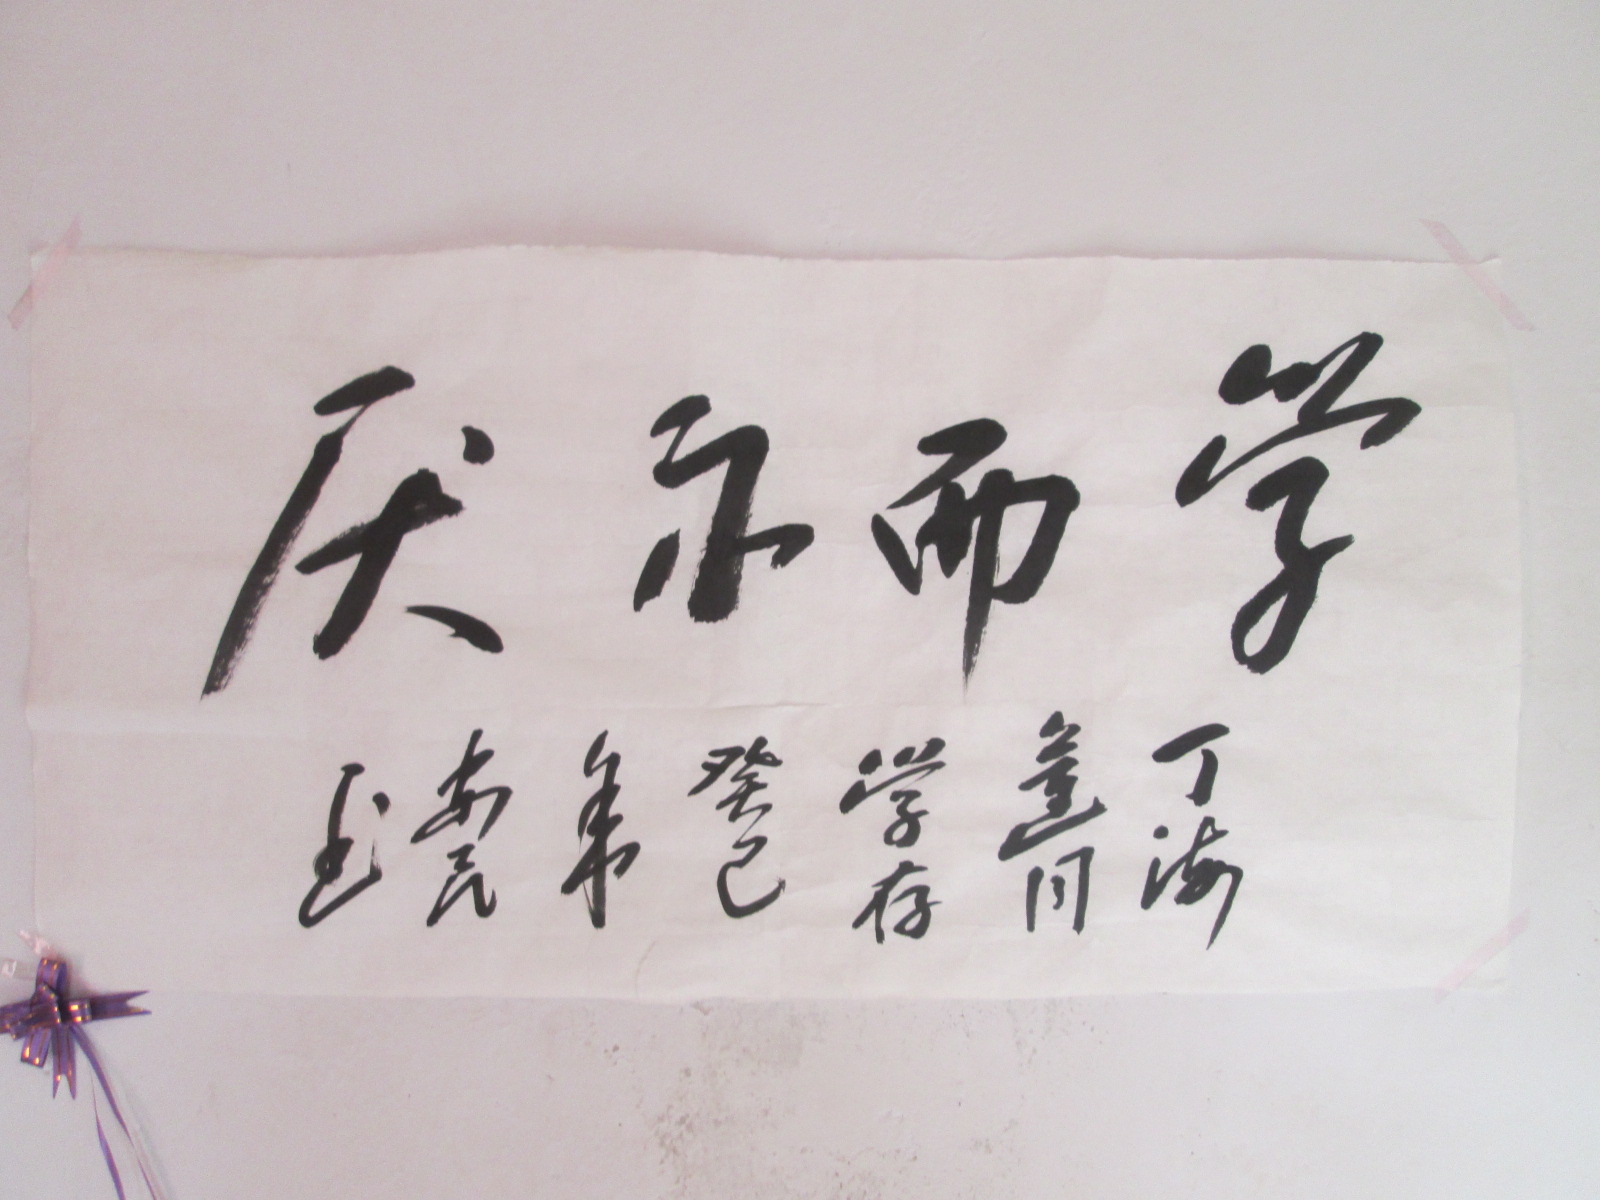 学而不厌
丁海
同
学存
癸巳
年
安民
书